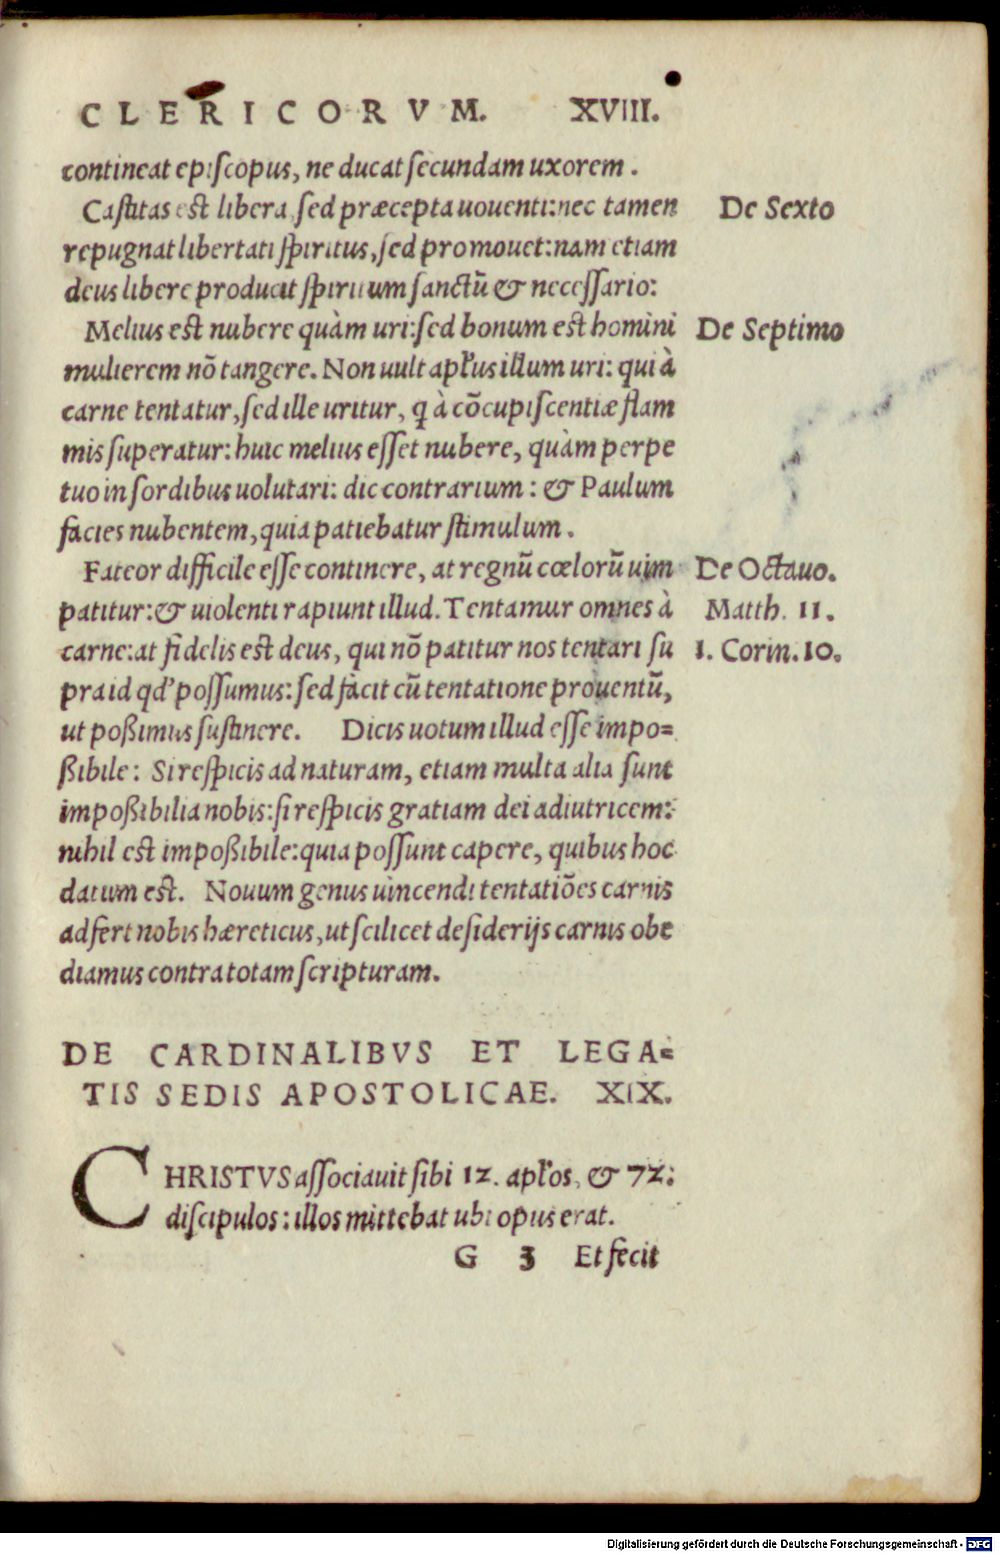 CLERICORVM. XVIII.
contineat episcopus, ne ducat secundam uxorem.
Castitas est libera sed præcepta uouenti: nec tamen De Sexto
repugnat libertati spiritus, sed promouet: nam etiam
deus libere producit spiritum sanctū & necessario:
Melius est nubere quàm uri: sed bonum est homini De Septimo
mulierem nō tangere. Non uult apłus illum uri: qui à
carne tentatur, sed ille uritur, q̃ à cōcupiscentiæ flam
mis superatur: huic melius esset nubere, quàm perpe
tuo in sordibus uolutari: dic contrarium: & Paulum
facies nubentem, quia patiebatur stimulum.
Fateor difficile esse continere, at regnū cœlorū uim De Octauo.
patitur: & uiolenti rapiunt illud. Tentamur omnes à Matth. 11.
carne: at fidelis est deus, qui nō patitur nos tentari su 1. Corin. 10.
pra id qd' possumus: sed facit cū tentatione prouentū,
ut poßimus sustinere. Dicis uotum illud esse impo=
ßibile: Si respicis ad naturam, etiam multa alia sunt
impoßibilia nobis: si respicis gratiam dei adiutricem:
nihil est impoßibile: quia possunt capere, quibus hoc
datum est. Nouum genus uincendi tentatiōes carnis
adfert nobis hæreticus, ut scilicet desiderijs carnis obe
diamus contra totam scripturam.
DE CARDINALIBVS ET LEGA=
TIS SEDIS APOSTOLICAE. XIX.
CHRISTVS associauit sibi 12. apłos, & 72:
discipulos: illos mittebat ubi opus erat.
G 3 Et fecit
Digitalisierung gefördert durch die Deutsche Forschungsgemeinschaft - DFG